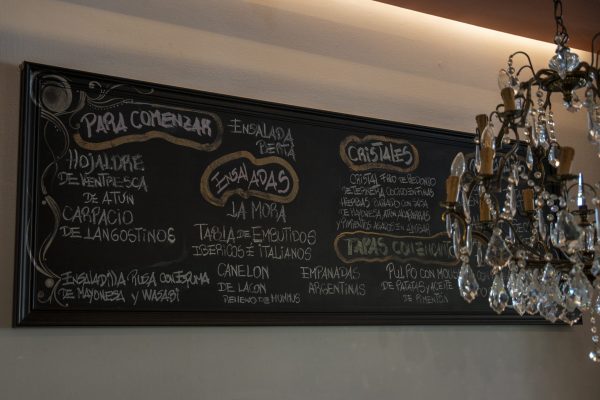 PARA COMENZAR
HOJALDRE
DE VENTRESCA
DE ATÚN
CARPACIO
DE LANGOSTINOS
ENSALADILLA RUSA CON ESPUMA
DE MAYONESA Y WASABI
ENSALADA
PERTA
ENSALADAS
LA MORA
TABLA DE EMBUTIDOS
IBERICOS E ITALIANOS
CANELON
DE LACON
RELLENO DE HUMMUS
EMPANADAS
ARGENTINAS
CRISTALES
CRISTAL FINO DE
DE MAYONESA ATÚN
Y PIMIENTOS ASADOS EN
TAPAS CON ENCANTO
PULPO CON
DE PATATAS Y ACEITE
DE PIMENTÓN